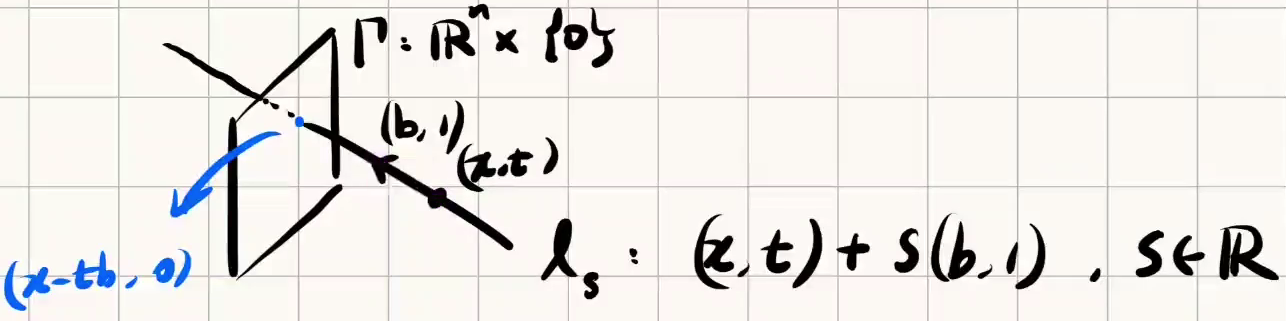 Γ: ℝⁿ × {0}
(b, 1)
(x, t)
(x-tb, 0)
l_s : (x, t) + s(b, 1), s ∈ ℝ